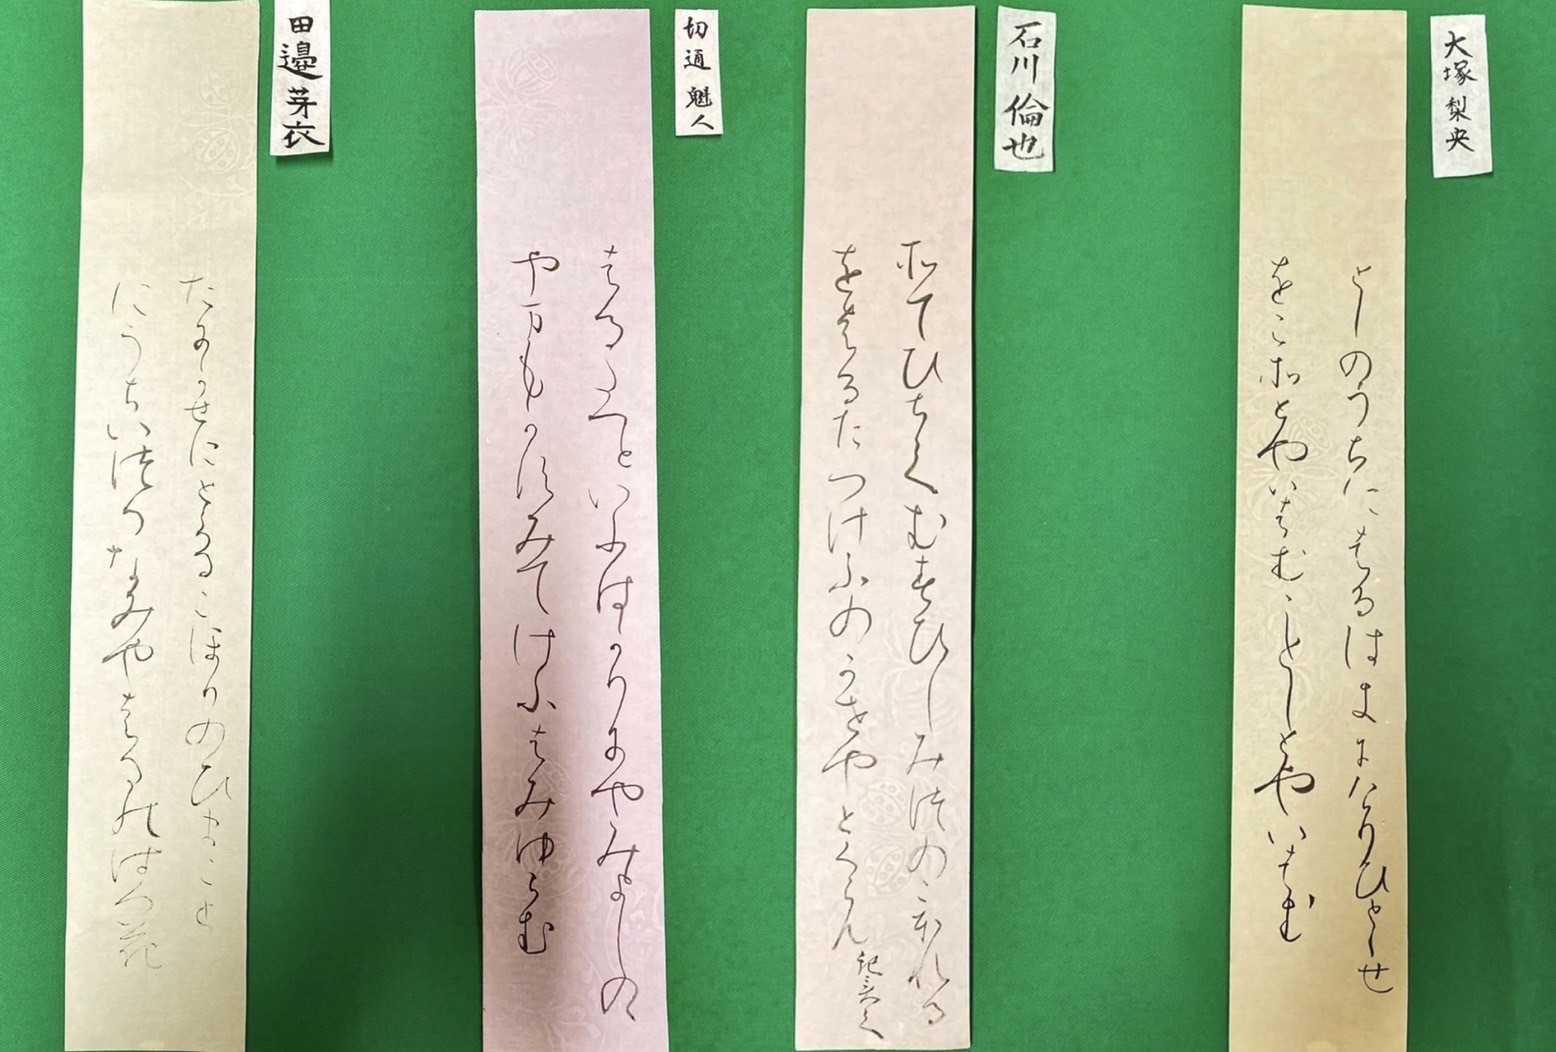 大塚梨央
としのうちにはるはきにけりひとゝせ
をこそとやいはむことしとやいはむ
石川倫也
そてひちてむすひしみつのこほれる
をはるたつけふのかせやとくらん
紀貫之
切通魁人
はるたつといふはかりにやみよしの
やまもかすみてけふはみゆらむ
田邉芽衣
たにかせにとくるこほりのひまこと
にうちいつるなみやはるのはつ花